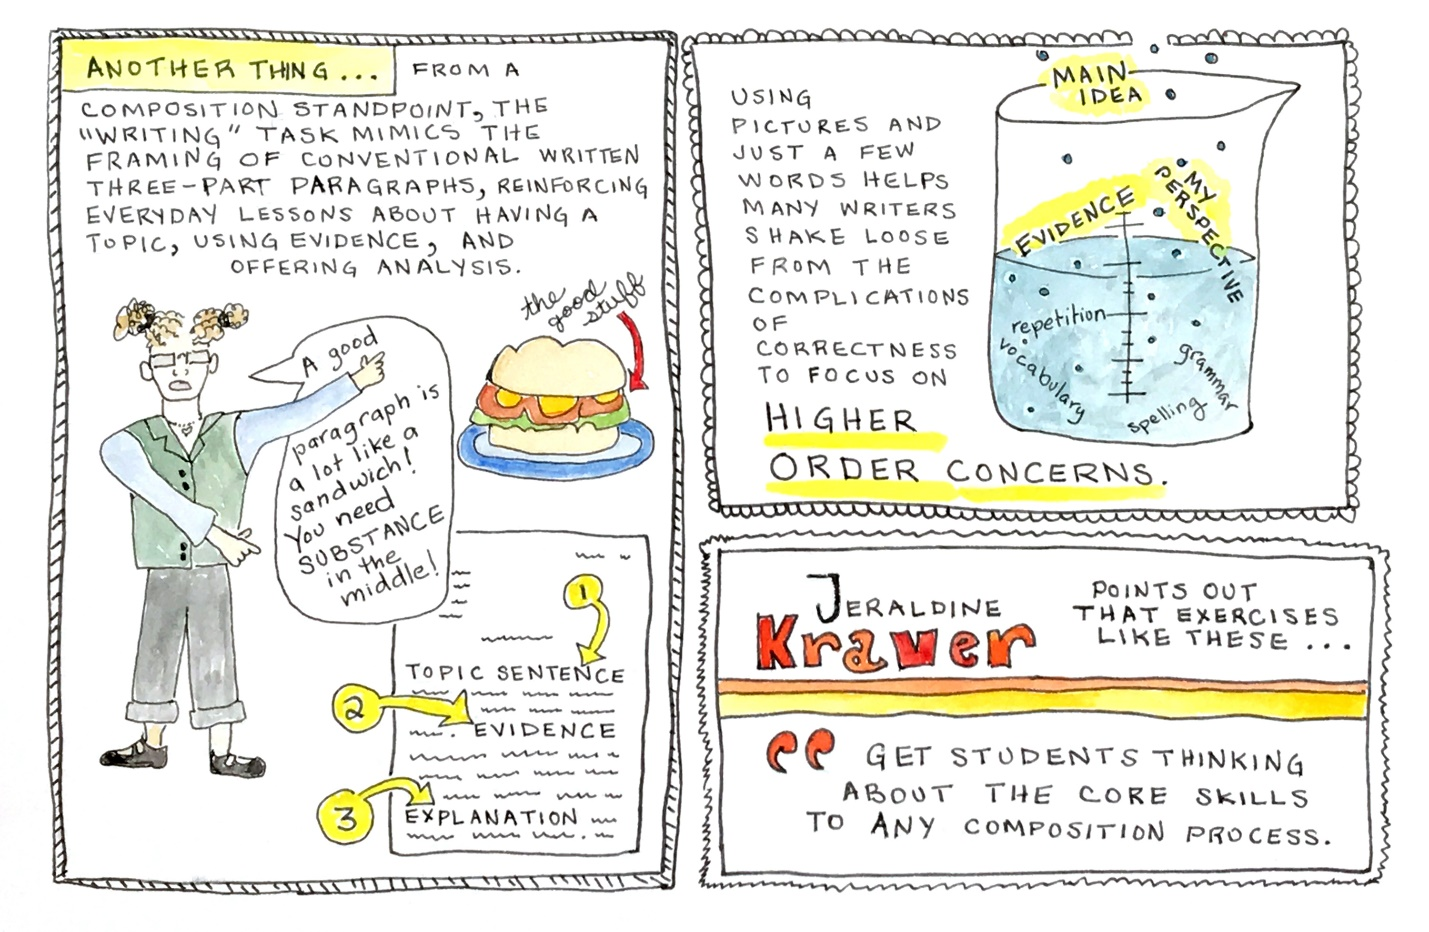 ANOTHER THING... FROM A
COMPOSITION STANDPOINT, THE
"WRITING" TASK MIMICS THE
FRAMING OF CONVENTIONAL WRITTEN
THREE-PART PARAGRAPHS, REINFORCING
EVERYDAY LESSONS ABOUT HAVING A
TOPIC, USING EVIDENCE, AND
OFFERING ANALYSIS.
the
good
stuff
A good
paragraph is
a lot like a
sandwich!
You need
SUBSTANCE
in the
middle!
1
TOPIC SENTENCE
2
EVIDENCE
3
EXPLANATION
USING
PICTURES AND
JUST A FEW
WORDS HELPS
MANY WRITERS
SHAKE LOOSE
FROM THE
COMPLICATIONS
OF
CORRECTNESS
TO FOCUS ON
HIGHER
ORDER CONCERNS.
MAIN
IDEA
EVIDENCE
MY
PERSPECTIVE
repetition
vocabulary
grammar
spelling
JERALDINE
Kraver
POINTS OUT
THAT EXERCISES
LIKE THESE ...
“ GET STUDENTS THINKING
ABOUT THE CORE SKILLS
TO ANY COMPOSITION PROCESS.